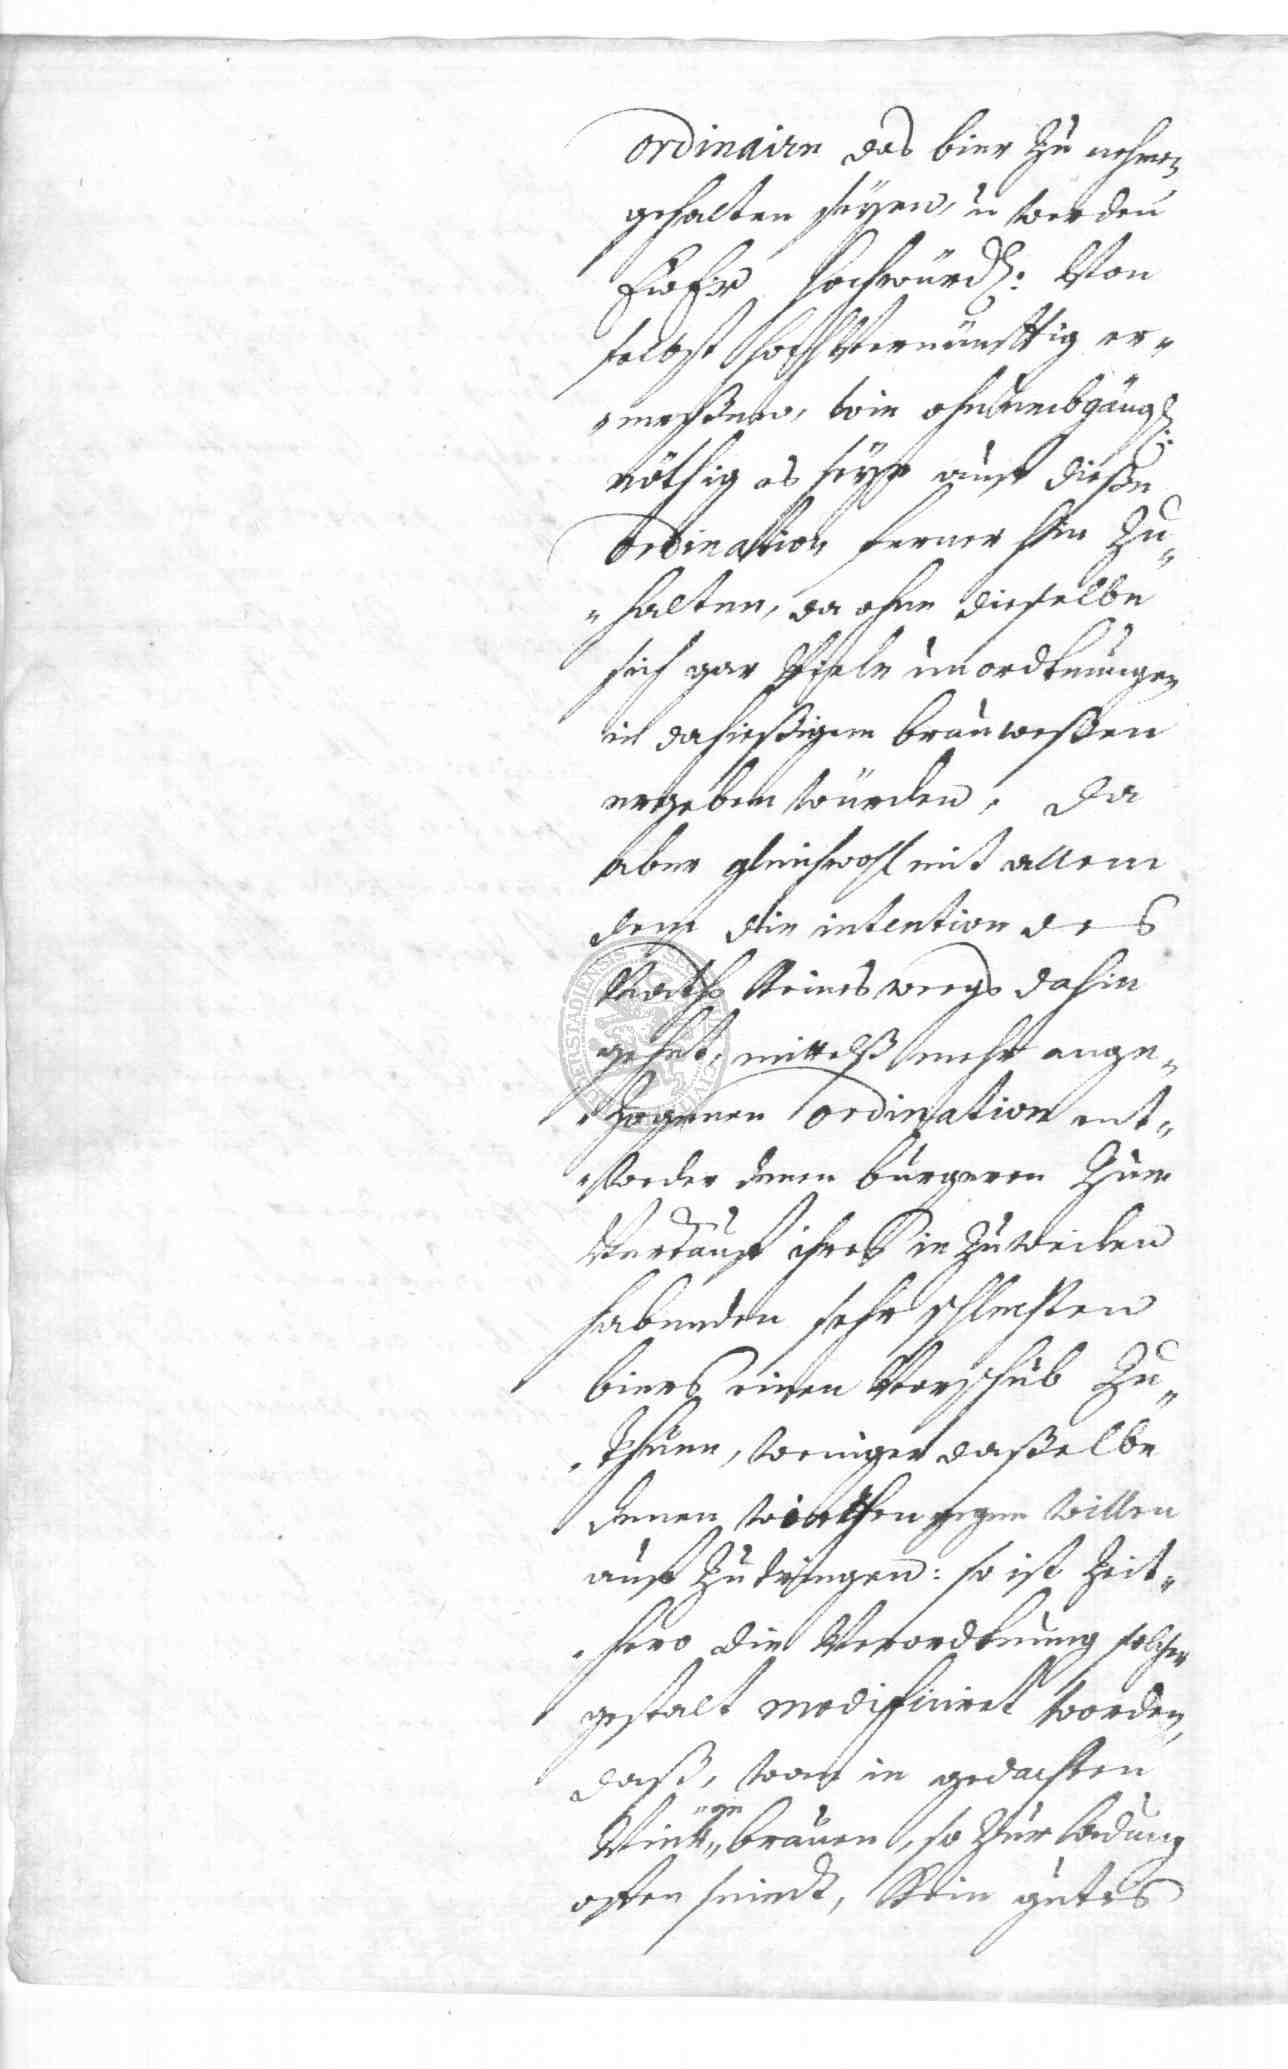 ordinaire das bier zu nehmen
gehalten seÿen, u werden
Ewer hochwürd: Von
selbst hochVernünfftig er„
„meßen, wie ohnumbgängl:
nöthig es seÿe auf dieße
Ordination ferner hin zu„
„halten, da ohne dieselbe
sich gar Viele unordtnungen
in dahießigem brauweßen
ergeben würden. Da
aber gleichwohl mit allem
dem die intention des
Raths Keines weegs dahin
gehet, mittelß mehr ange„
„zogenen Ordination ent„
„weder denen burgeren zum
Verkauf ihres in zuweilen
habenden sehr schlechten
biers einen Vorschub zu„
„thuen, weniger daßelbe
denen wirthen gegen willen
auf zudringen: so ist zeit„
„hero die Verordtnung solcher
gestalt modificiret worden,
daß, wan in gedachten
brauen, so zur ladung
offen seindt, Kein gutes
BUDGERSTADIENSIS